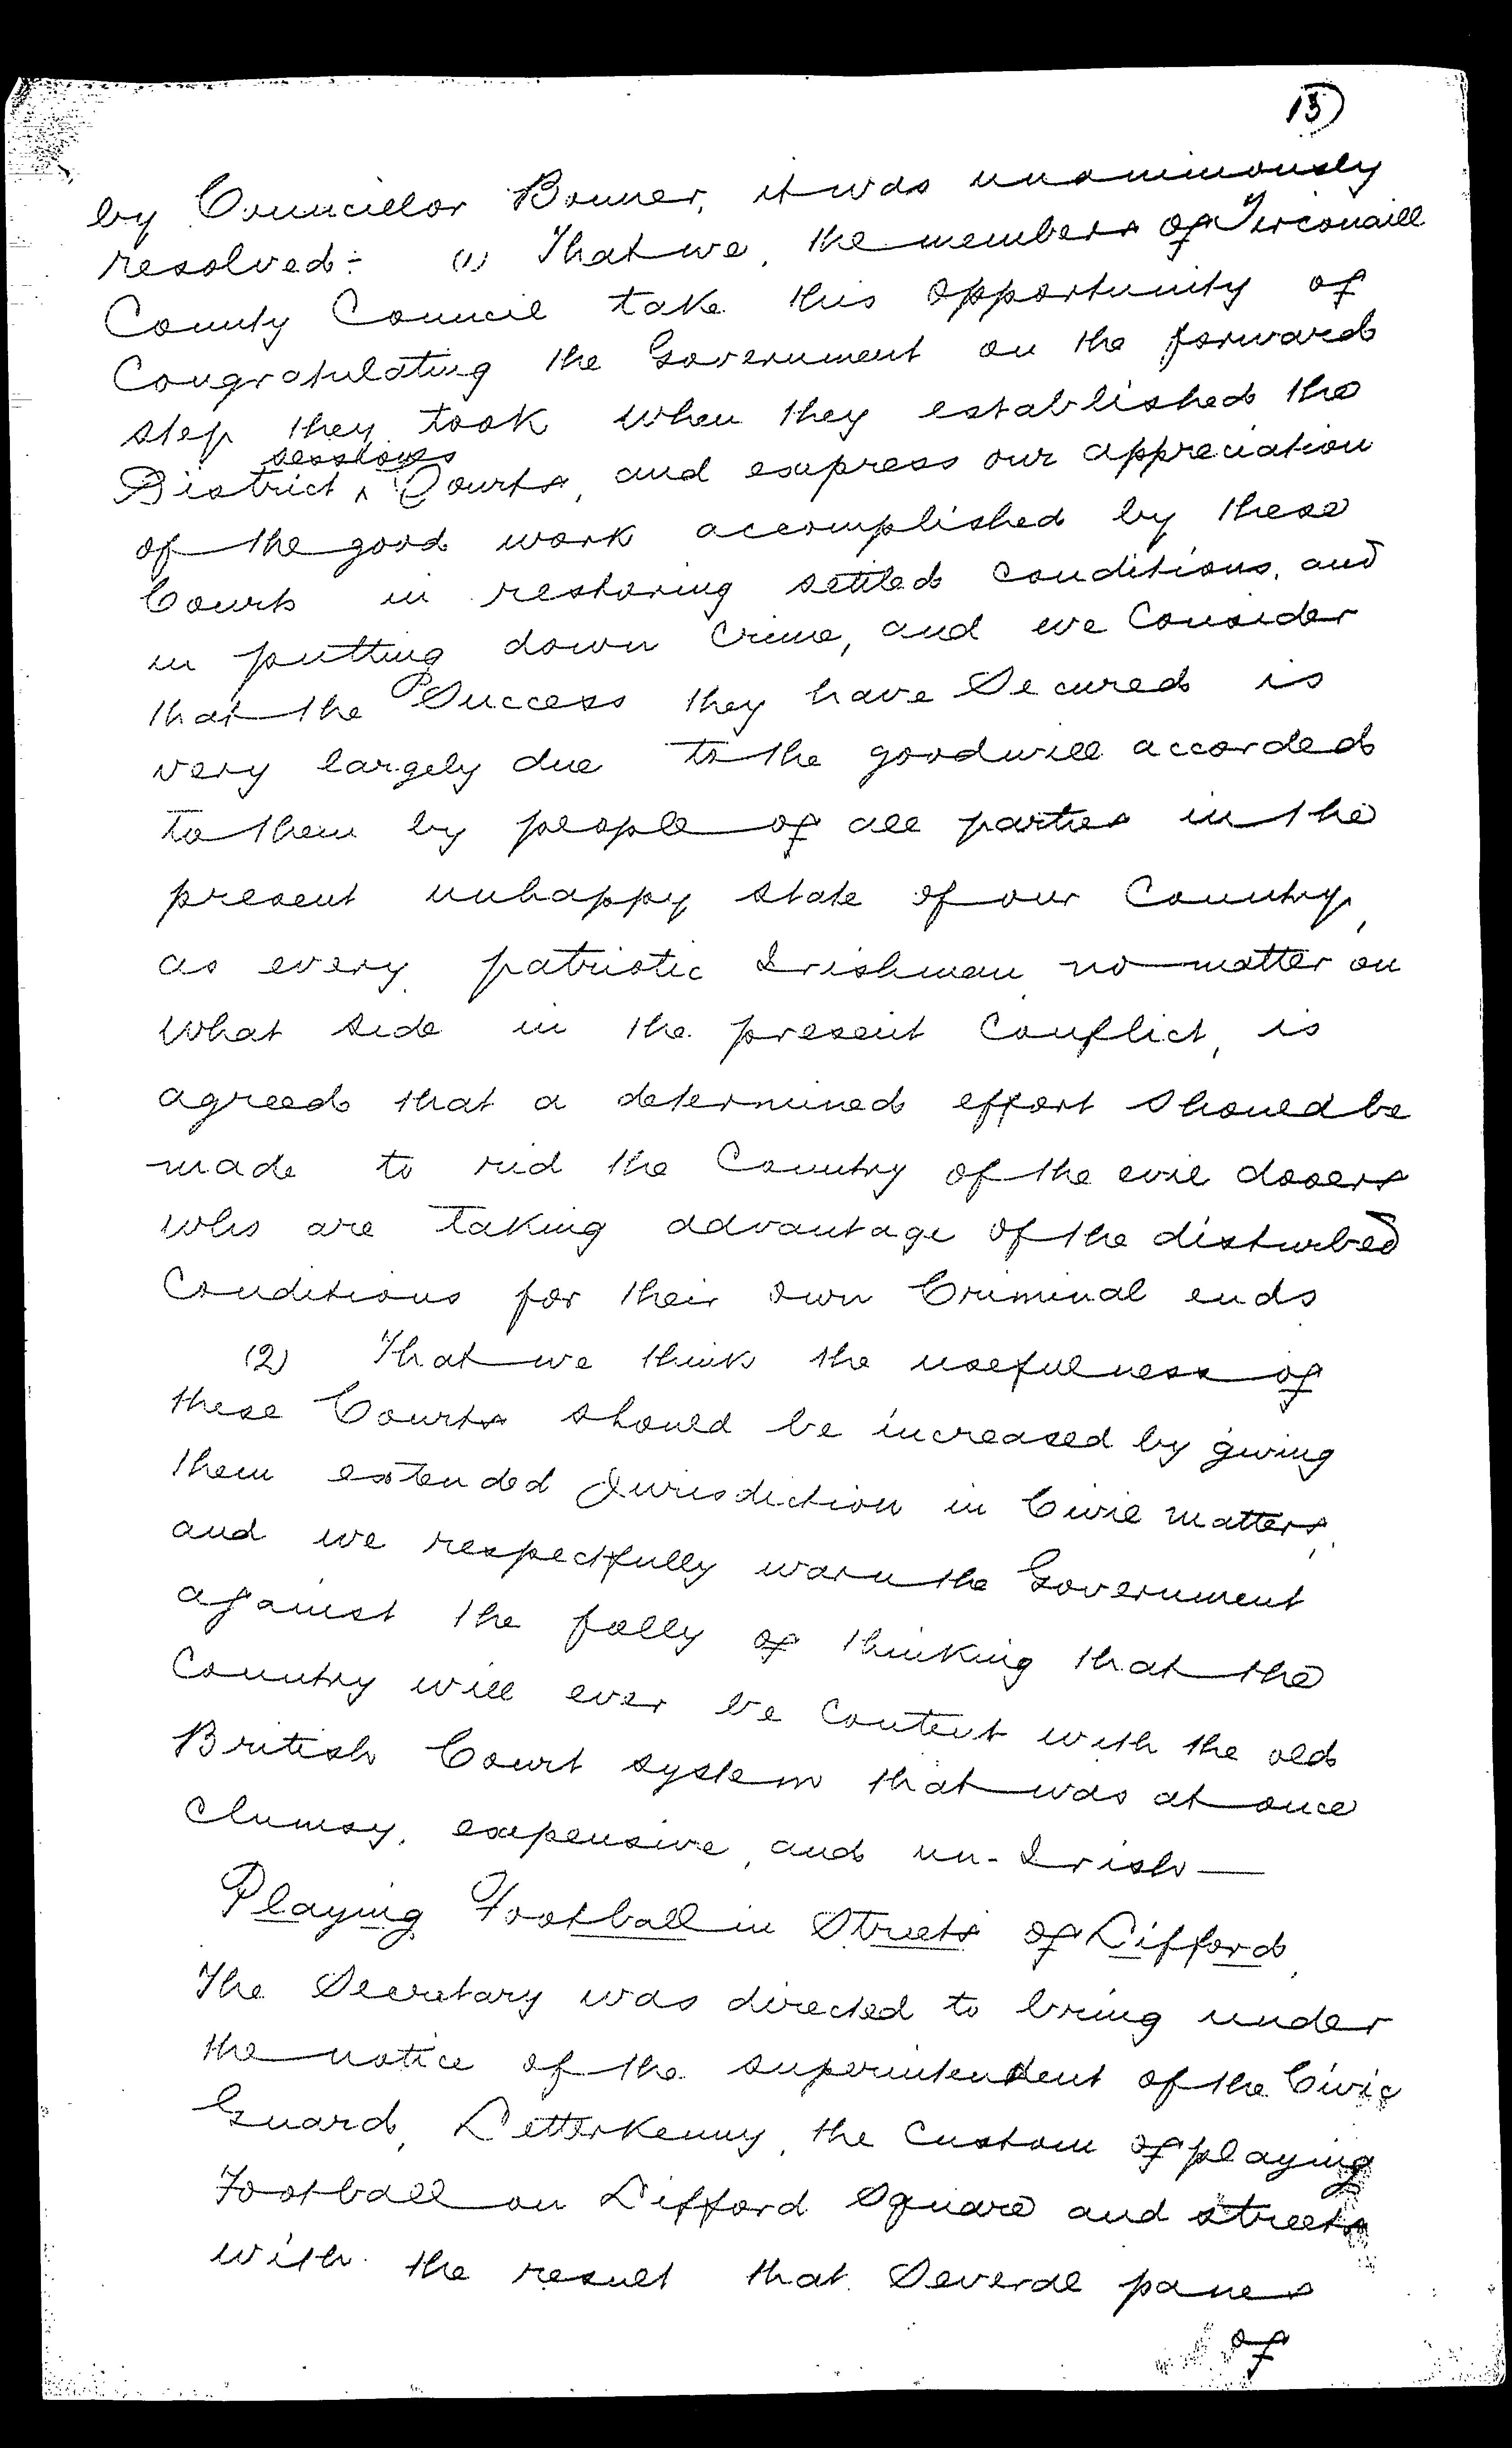 15
by Councillor Bonner, it was unanimously
resolved:- (1) That we, the members of Tirconaill
County Council take this opportunity of
Congratulating the Government on the forward
step they took when they established the
sessions
District ^ Courts, and express our appreciation
of the good work accomplished by these
Courts in restoring settled conditions, and
in putting down Crime, and we Consider
that the Success they have Secured is
very largely due to the goodwill accorded
to them by people of all parties in the
present unhappy state of our Country,
as every patriotic Irishman no matter on
what side in the present Conflict, is
agreed that a determined effort should be
made to rid the Country of the evil doers
who are taking advantage of the disturbed
Conditions for their own Criminal ends
(2) That we think the usefulness of
these Courts should be increased by giving
them extended Jurisdiction in Civil matters,
and we respectfully warn the Government
against the folly of thinking that the
Country will ever be Content with the old
British Court system that was at once
Clumsy, expensive, and un-Irish —
Playing Football in Streets of Lifford
The Secretary was directed to bring under
the notice of the superintendent of the Civic
Guard, Letterkenny, the Custom of playing
Football on Lifford Square and streets
with the result that Several panes
of